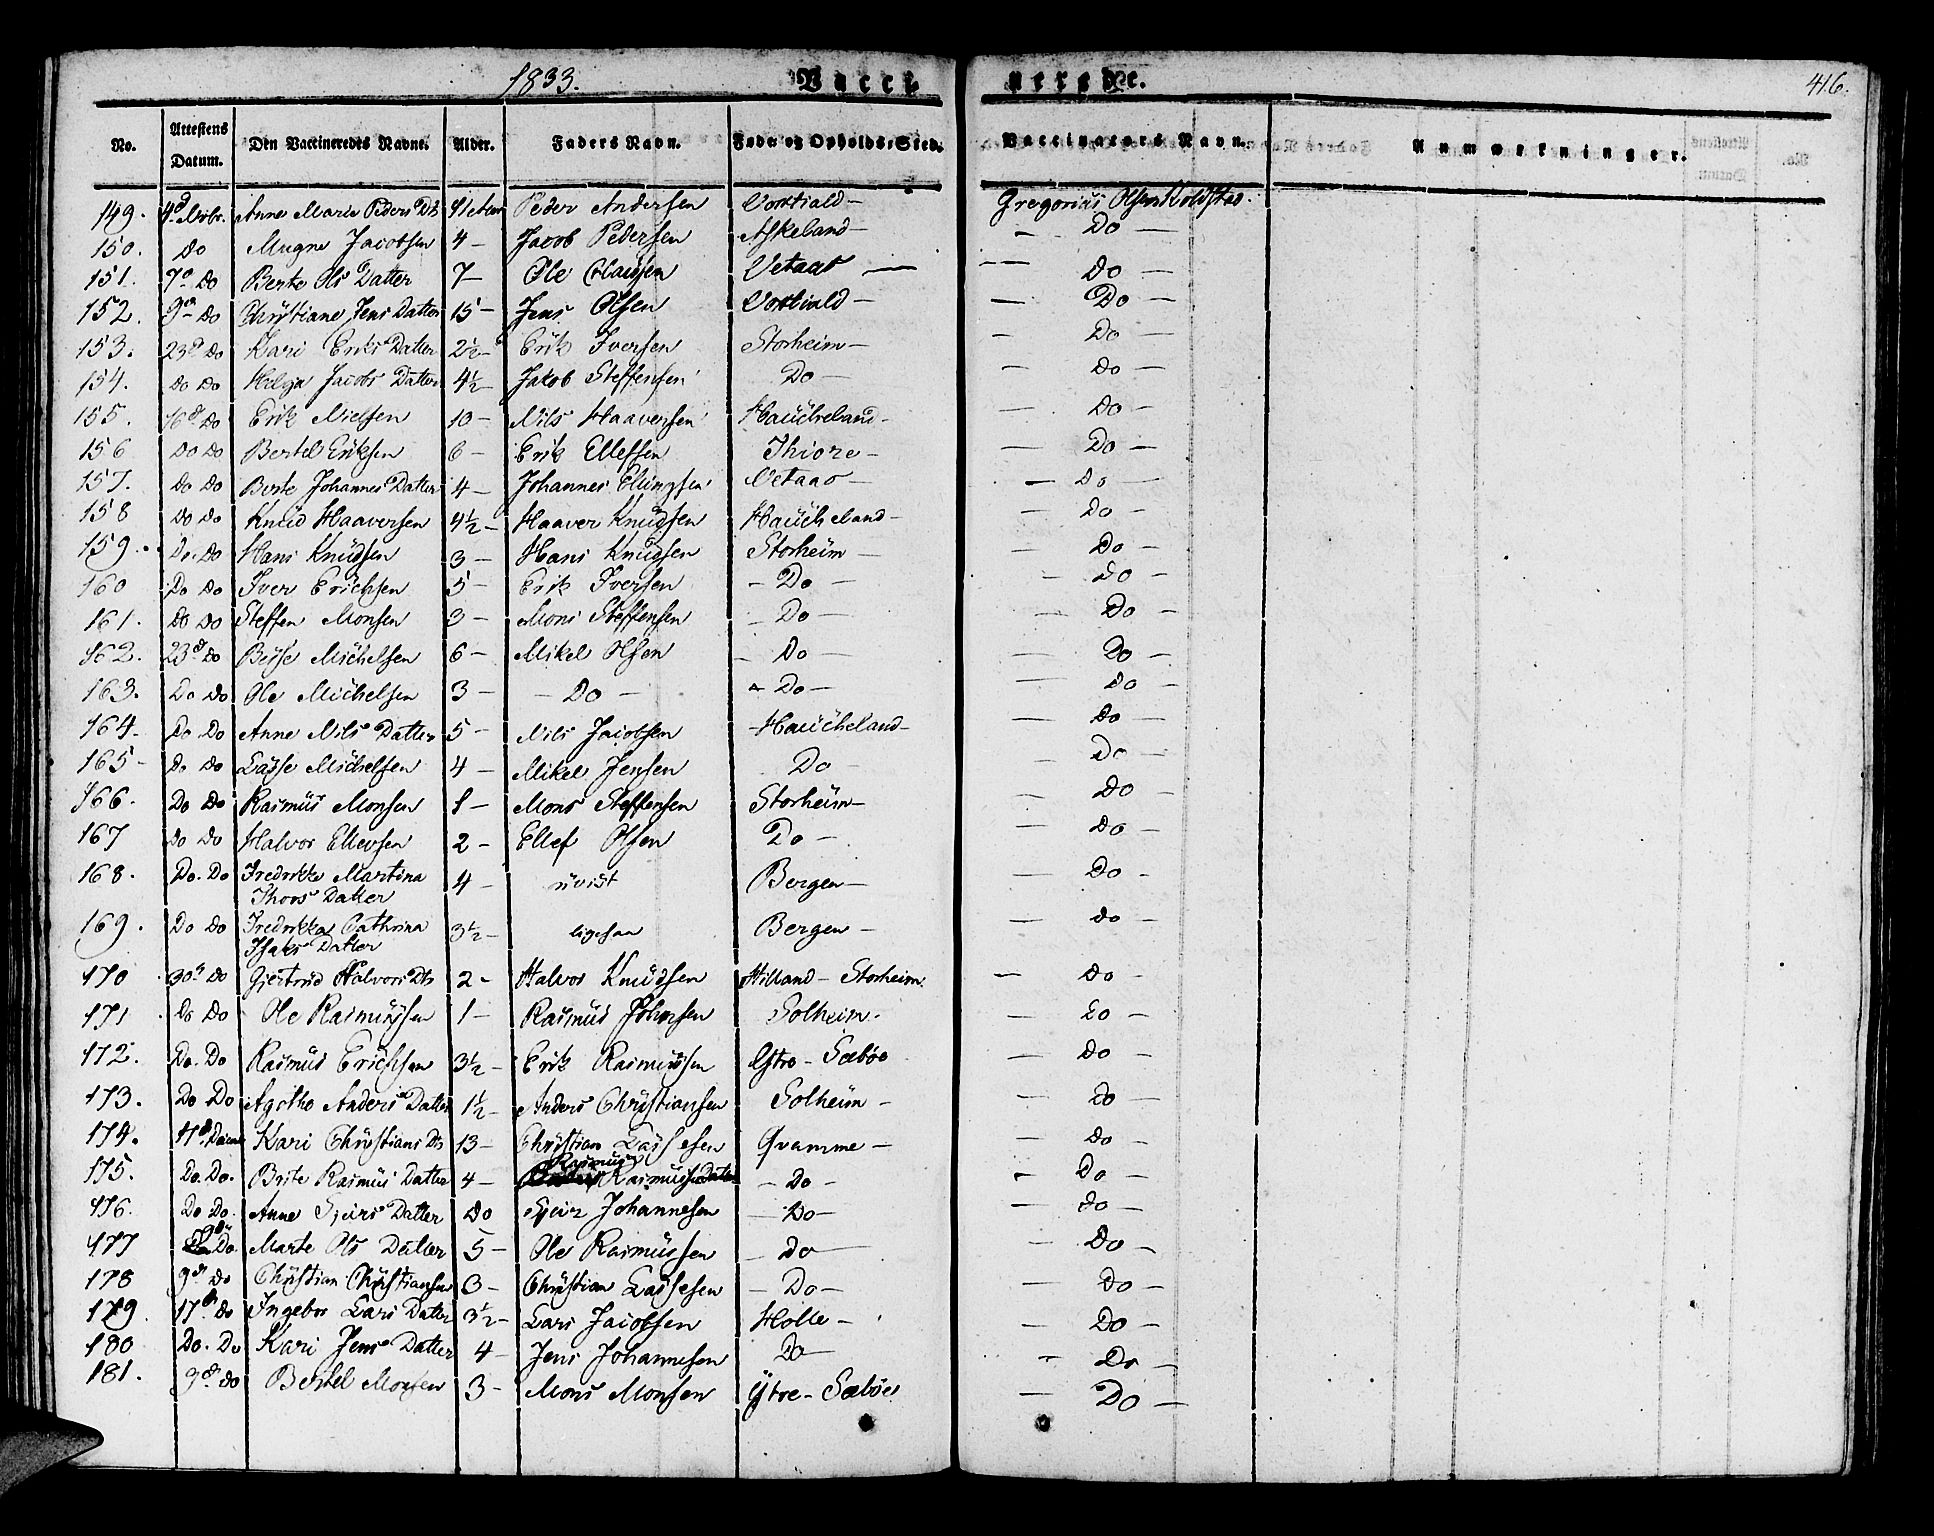 1833. Vaccinerede. 416.
No. Attestens Datum. Den Vaccineredes Navne. Alder. Faders Navn. Føde og Opholds-Sted. Vaccinators Navn. Anmærkninger.
149. 4d Novbr. Anne Marie Peders Dtr 4 1/2 Aar Peder Andersen Gregorius Olsen Koldsted.
150. do Mugne Jacobsen 4 - Jacob Pedersen Askeland - - Do -
151. 7d do Berte Ols Datter 7 - Ole Clausen Vetaas - - do -
152. 9de do Christiane Jens Datter 15 - Jens Olsen - Do -
153. 23d do Kari Eriks Datter 2 1/2 - Erik Iversen Storheim - - Do -
154. do do Helga Jacobs Datter 4 1/2 - Jakob Steffensen Do - - do -
155. 16d do Erik Nielsen 10 - Nils Haaversen Haucheland - - do -
156 Do do Bertel Eriksen 6 - Erik Ellefsen Thiore - - Do -
157. do do Berte Johannes Datter 4 - Johannes Elingsen Vetaas - - Do -
158 do do Knud Haaversen 4 1/2 - Haaver Knudsen Haucheland - - do -
159. Do. do Hans Knudsen 3 - Hans Knudsen Storheim - - Do -
160 Do do Iver Erichsen 5 - Erik Iversen - Do - - do -
161. do do Steffen Monsen 3 - Mons Steffensen - Do - - Do -
162. 23d do Børse Michelsen 6 - Mikel Olsen - Do - - Do -
163. Do do Ole Michelsen 3 - - Do - - Do - - do -
164. Do Do Anne Nils Datter 5 - Nils Jacobsen - Haucheland - - do -
165 - Do do Lasse Michelsen 4 - Mikel Jensen Do - - Do -
166. Do do Rasmus Monsen 1 - Mons Steffensen Storheim - - Do -
167 do do Halvor Ellevsen 2 - Ellef Olsen Do - - do -
168. Do. Do Fredrikke Martina 4 - uvist Bergen - - Do -
Thors Datter
169. Do do Fredrikke Cathrina 3 1/2 - ligesaa Bergen - - do -
Isaks Datter
170 30d do Gjertrud Halvors Dtr 2 - Halvor Knudsen Hilland - Storheim. - do -
171 Do do Ole Rasmussen 1 - Rasmus Johnsen Solheim. - Do -
172. Do. Do Rasmus Erichsen 3 1/2 - Erik Rasmussen Ytre - Sæbøe - do -
173. Do Do Agethe Anders Datter 1 1/2 - Anders Christiansen Solheim - - Do -
174. 11d Decmbr Kari Christians Dtr 13 - Christian Lassesen Qvamme - - do -
175. Do. Do. Brite Rasmus Datter 4 - Rasmus Rasmussen - Do - - Do -
176. Do Do. Anne Sjurs Datter do Sjur Johannesen - Do - - do -
177 9de Do. Marte Ols Datter 5 - Ole Rasmussen - Do - - Do -
178 9de do Christian Christiansen 3 - Christian Lassesen - Do - - Do -
179 17de do Ingebor Lars Datter 3 1/2 - Lars Jacobsen Holle - - Do -
180 Do. Do Kari Jens Datter 4 - Jens Johannesen Do - - Do -
181. 9de do Bertel Monsen 3 - Mons Monsen Ytre - Sæbøe - Do -